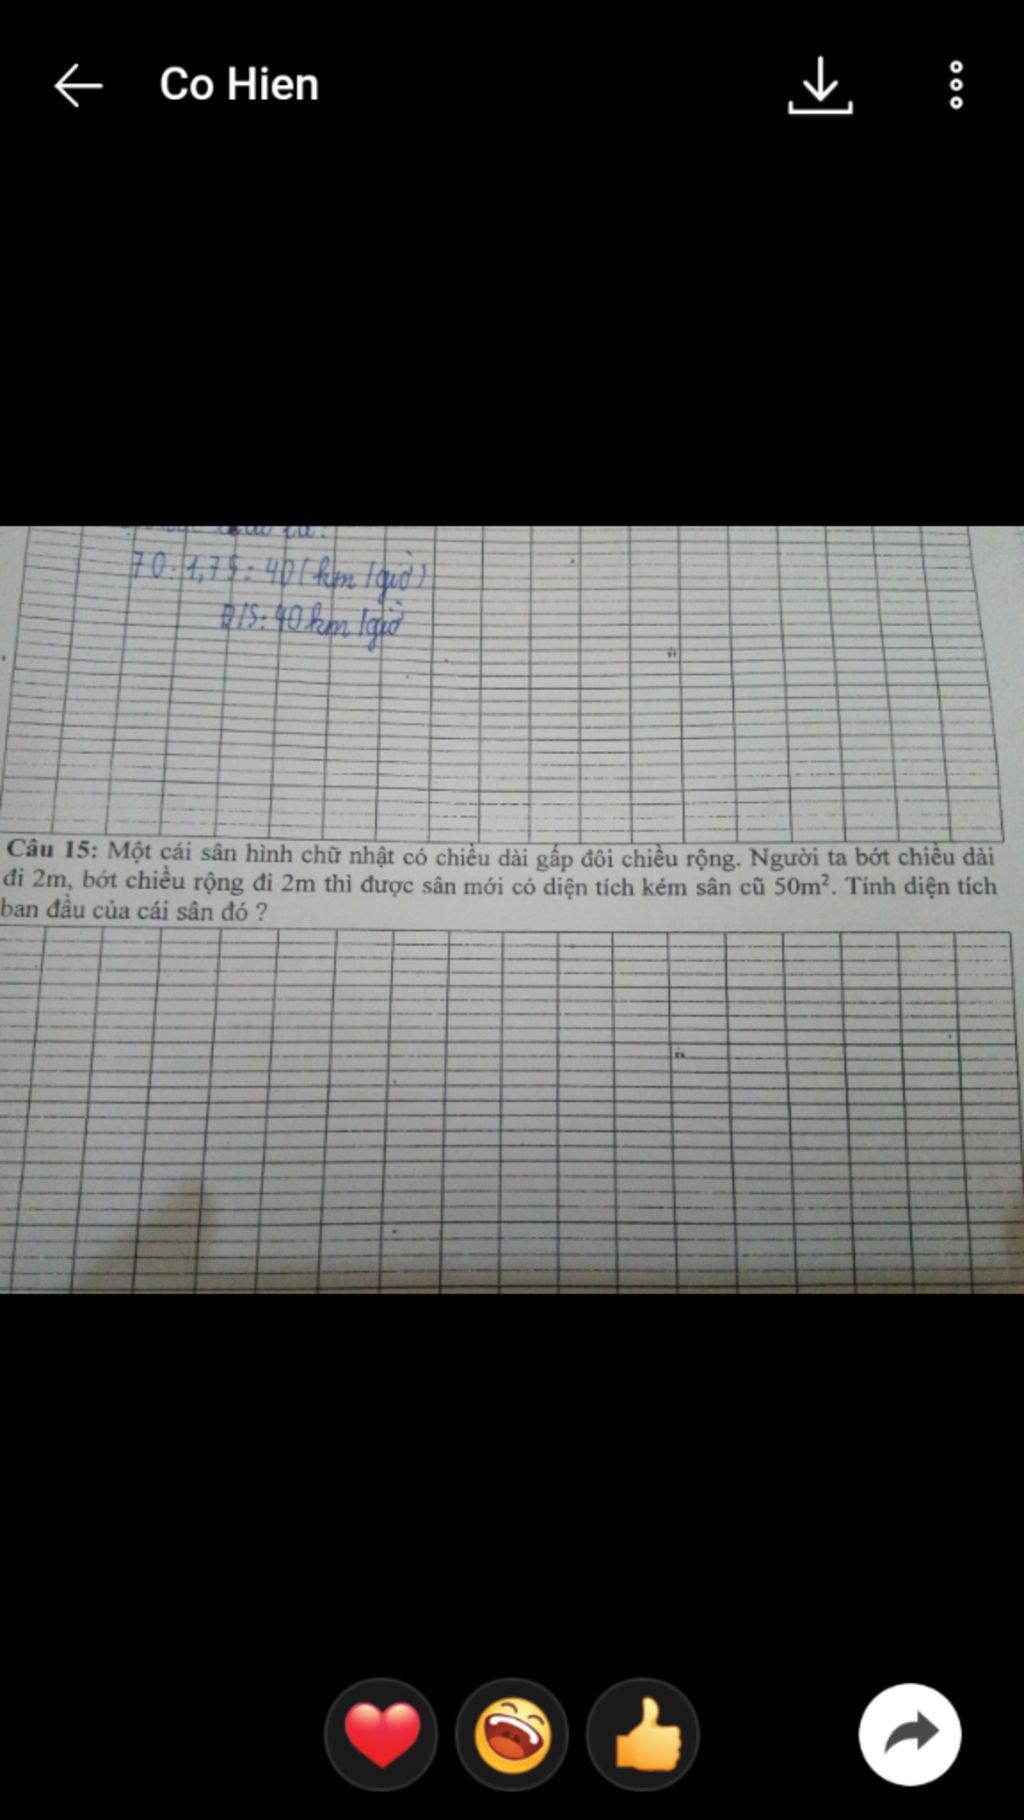 Co Hien
70:1,75=40(km/giờ)
Đ/S:40km/giờ
Câu 15: Một cái sân hình chữ nhật có chiều dài gấp đôi chiều rộng. Người ta bớt chiều dài
đi 2m, bớt chiều rộng đi 2m thì được sân mới có diện tích kém sân cũ 50m². Tính diện tích
ban đầu của cái sân đó ?